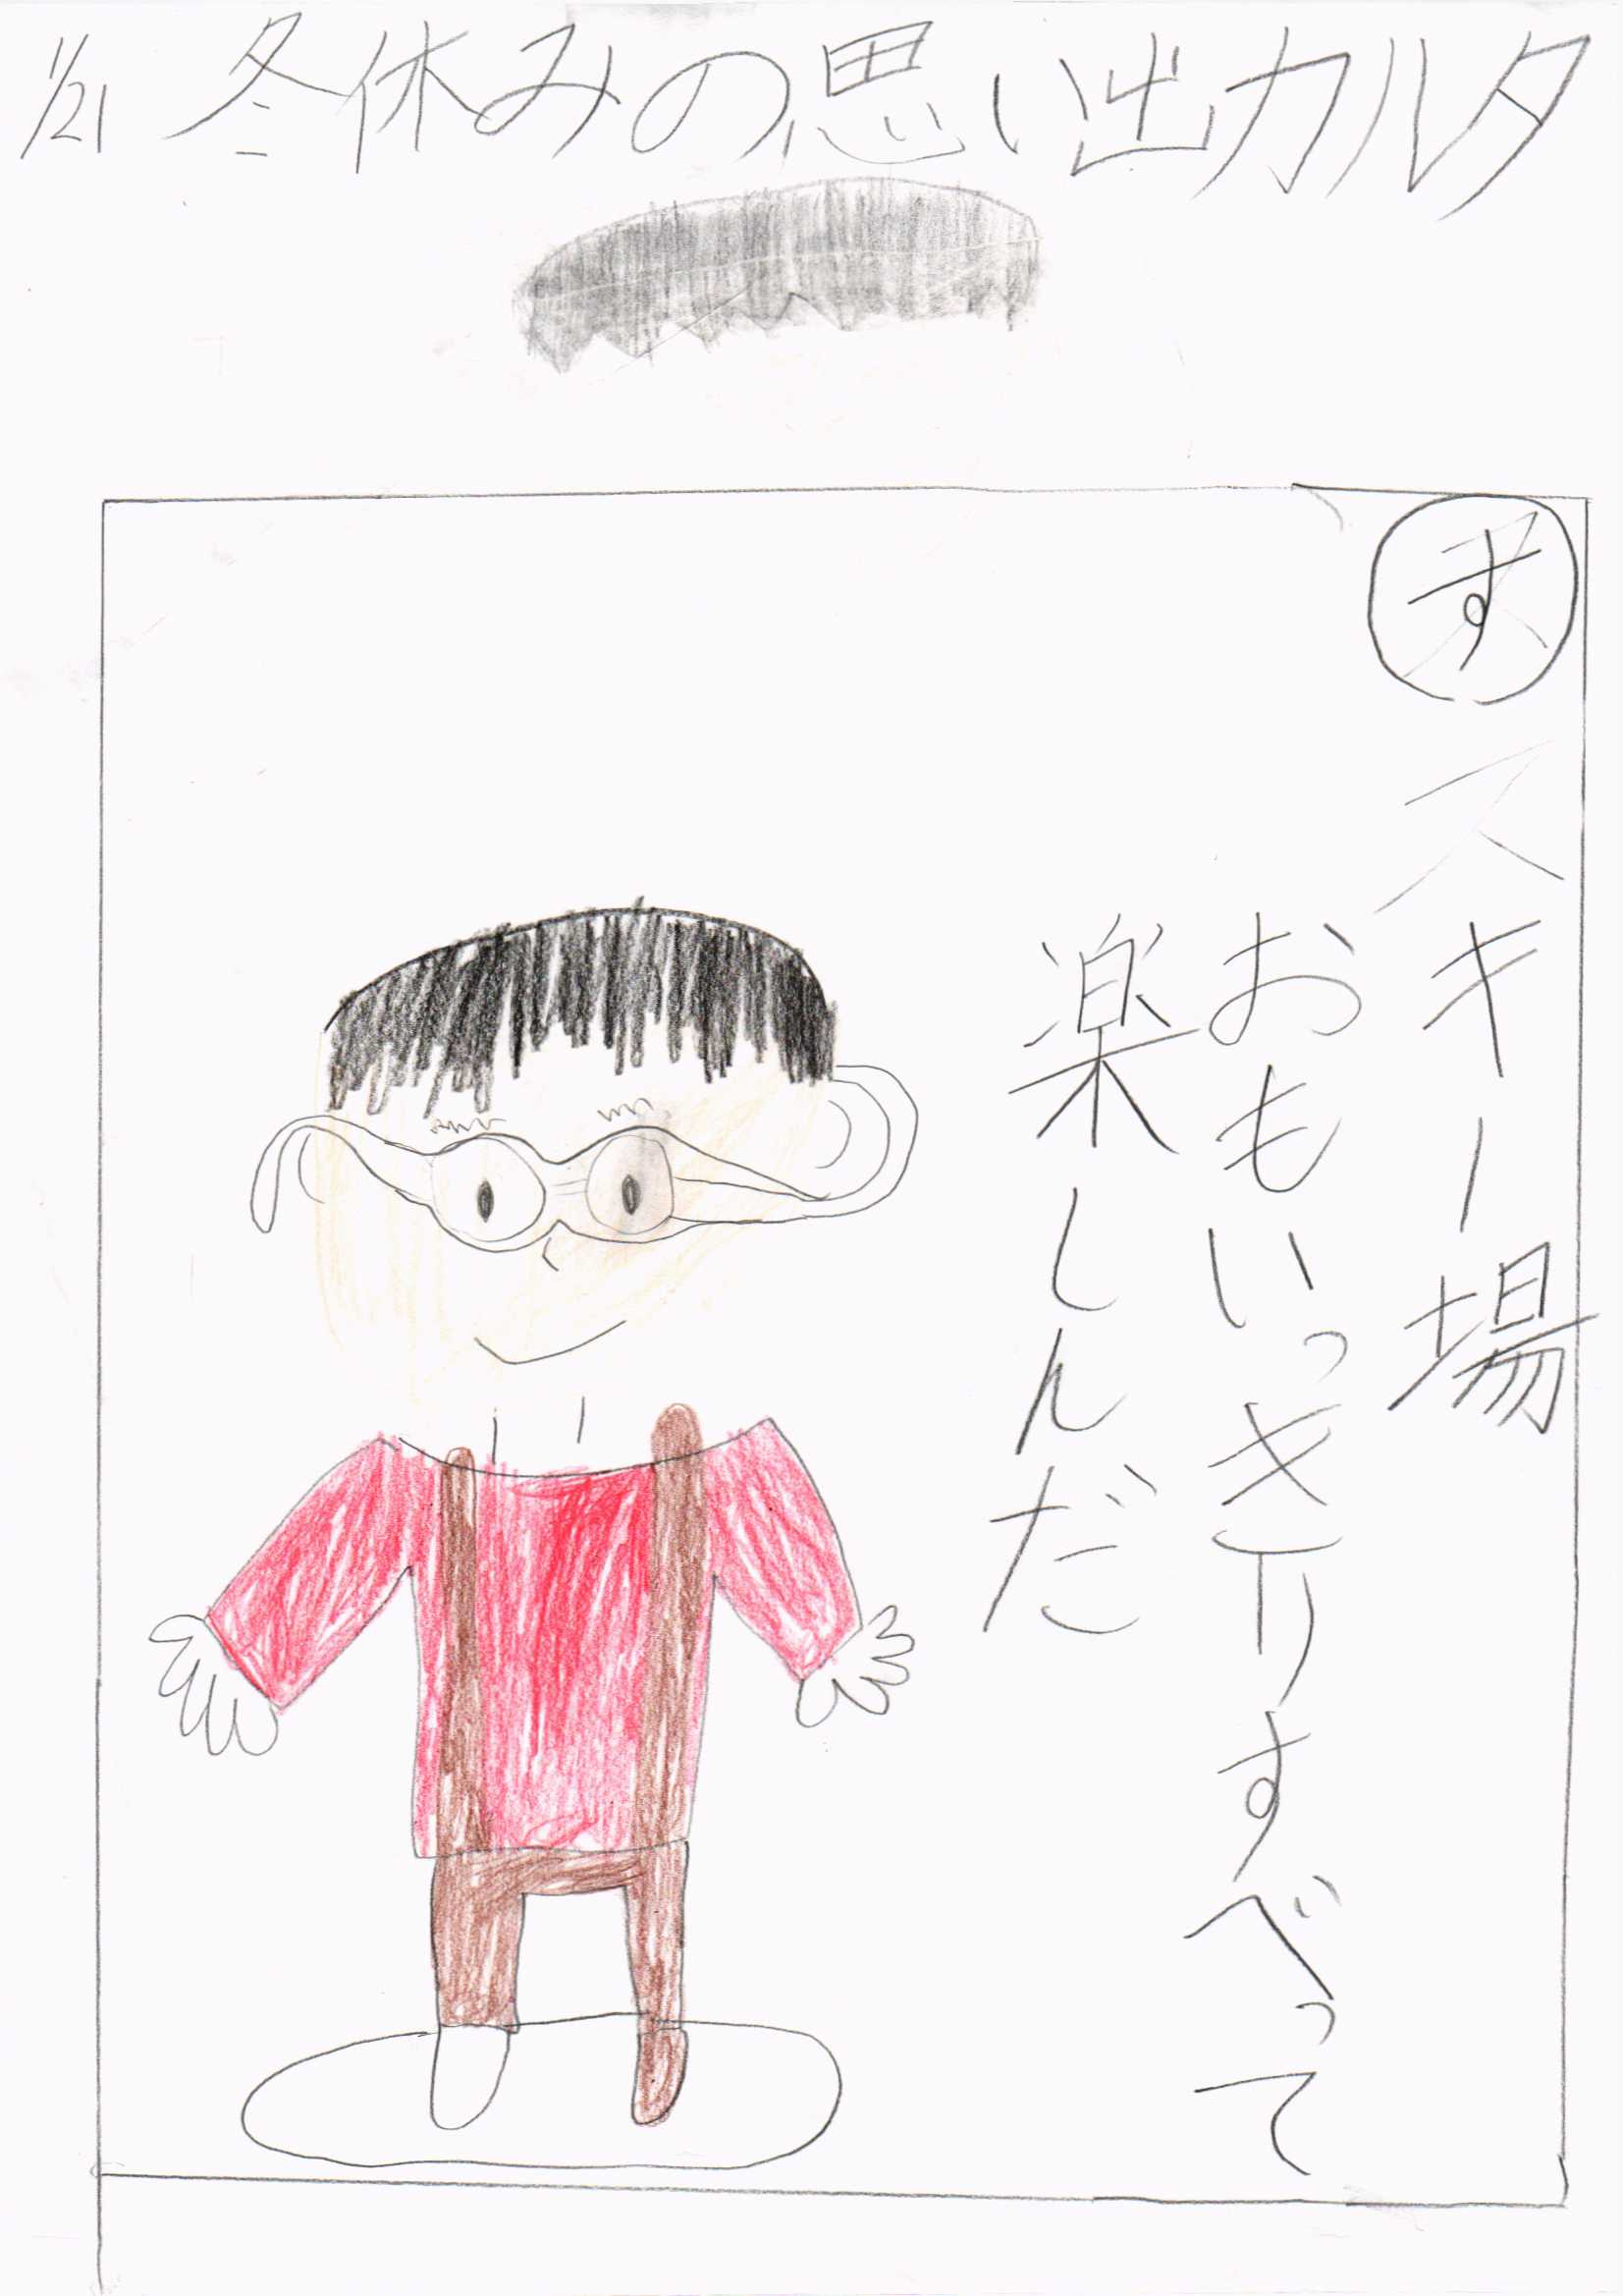 1/21 冬休みの思い出カルタ
す
スキー場
おもいっきりすべって
楽しんだ